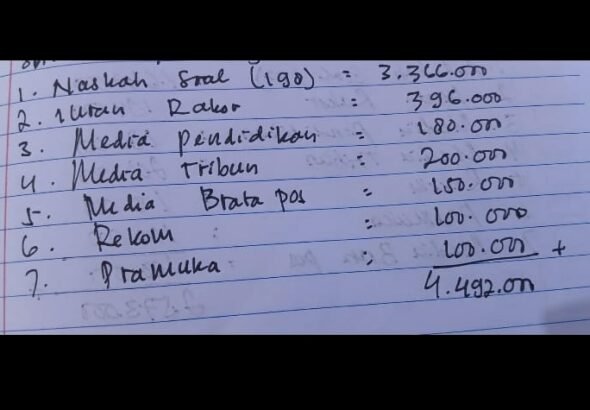 1. Naskah Soal (190) = 3.366.000
2. Iuran Rakor = 396.000
3. Media pendidikan = 180.000
4. Media Tribun = 200.000
5. Media Brata pos = 150.000
6. Rekom : = 100.000
7. Pramuka = 100.000 +
4.492.000